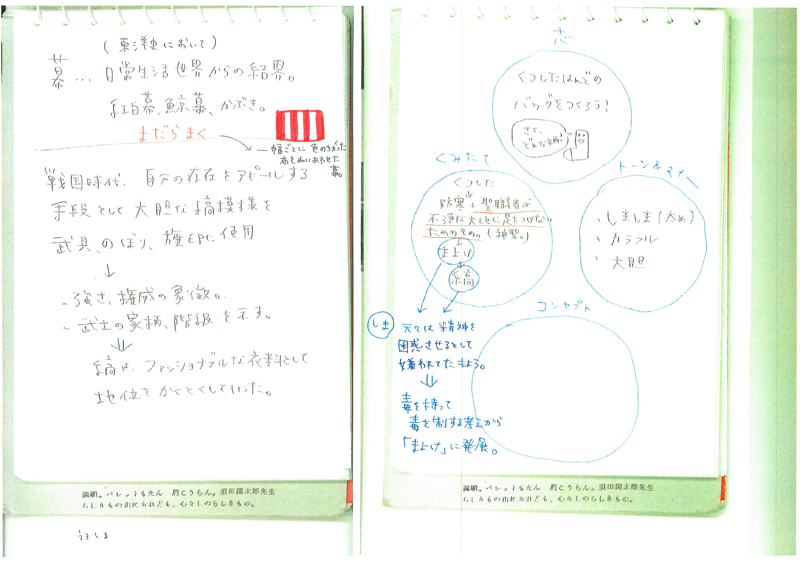 (東洋史において)
幕…日常生活世界からの結界。
紅白幕、鯨幕、かぶき。
まだらまく
幅ごとに色のちがった
布をぬいあわせた
幕。
戦国時代、自分の存在をアピールする
手段として大胆な縞模様を
武具、のぼり、旗印に使用
↓
・強さ、権威の象徴。
・武士の家柄、階級を示す。
⇓
縞は、ファッショナブルな衣料として
地位をかくとくしていった。
満願。パレットもたん 肩こうちん。須田国太郎先生
心々しのらしきもの。
志
くつしたはんどの
バッグをつくろう!
さて、
どんな柄?
くみたて
くつした
防寒+聖職者が
不浄な大地に足をつけない
ためのもの。(神聖。)
↓
まよけ
+
縞
トーン&マナー
・しましま(太め)
・カラフル
・大胆
しま
元々は精神を
困惑させるとして
嫌われてたもよう。
⇓
毒を持って
毒を制する考えから
「まよけ」に発展。
コンセプト
満願。パレットもたん 肩こうちん。須田国太郎先生
心々しのらしきもの。